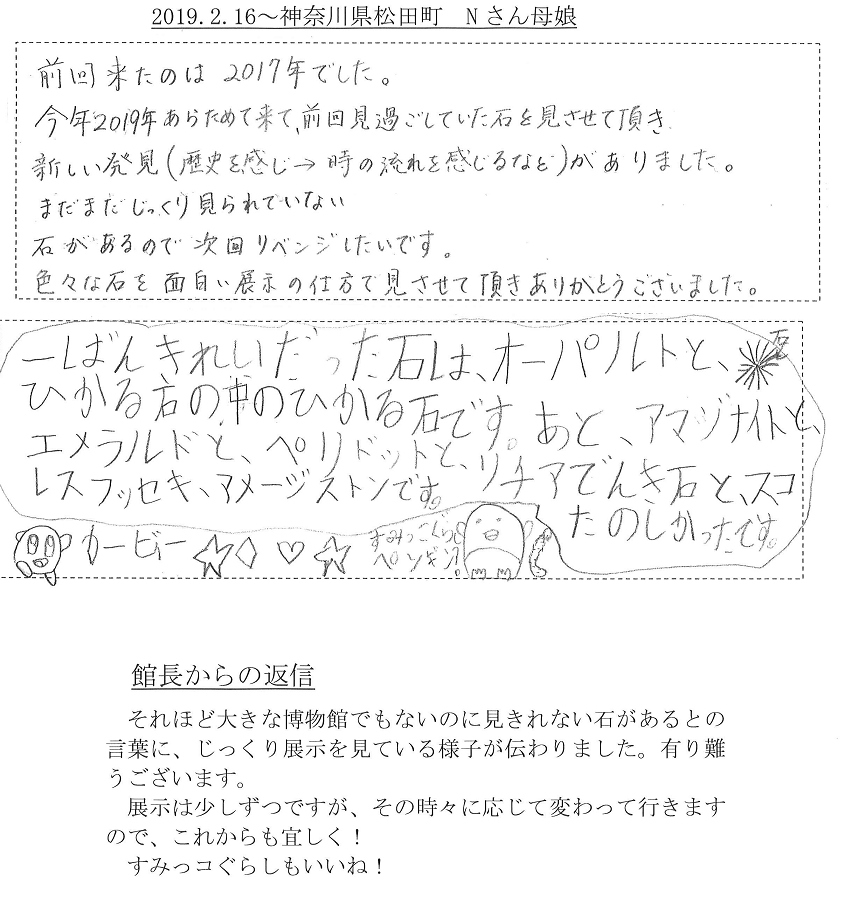 2019.2.16～神奈川県松田町　Nさん母娘
前回来たのは 2017年でした。
今年2019年あらためて来て、前回見過ごしていた石を見させて頂き
新しい発見(歴史を感じ→時の流れを感じるなど)がありました。
まだまだじっくり見られていない
石があるので次回リベンジしたいです。
色々な石を面白い展示の仕方で見させて頂きありがとうございました。
一ばんきれいだった石は、オーパルトと、
石
ひかる石の中のひかる石です。あと、アマゾナイトと、
エメラルドと、ペリドットと、リチアでんき石と、スコ
レスフッセキ、アメージストンです。
たのしかったです。
カービィー
すみっこぐらし
ペンギン?!
館長からの返信
　それほど大きな博物館でもないのに見きれない石があるとの
言葉に、じっくり展示を見ている様子が伝わりました。有り難
うございます。
　展示は少しずつですが、その時々に応じて変わって行きます
ので、これからも宜しく！
　すみっコぐらしもいいね！